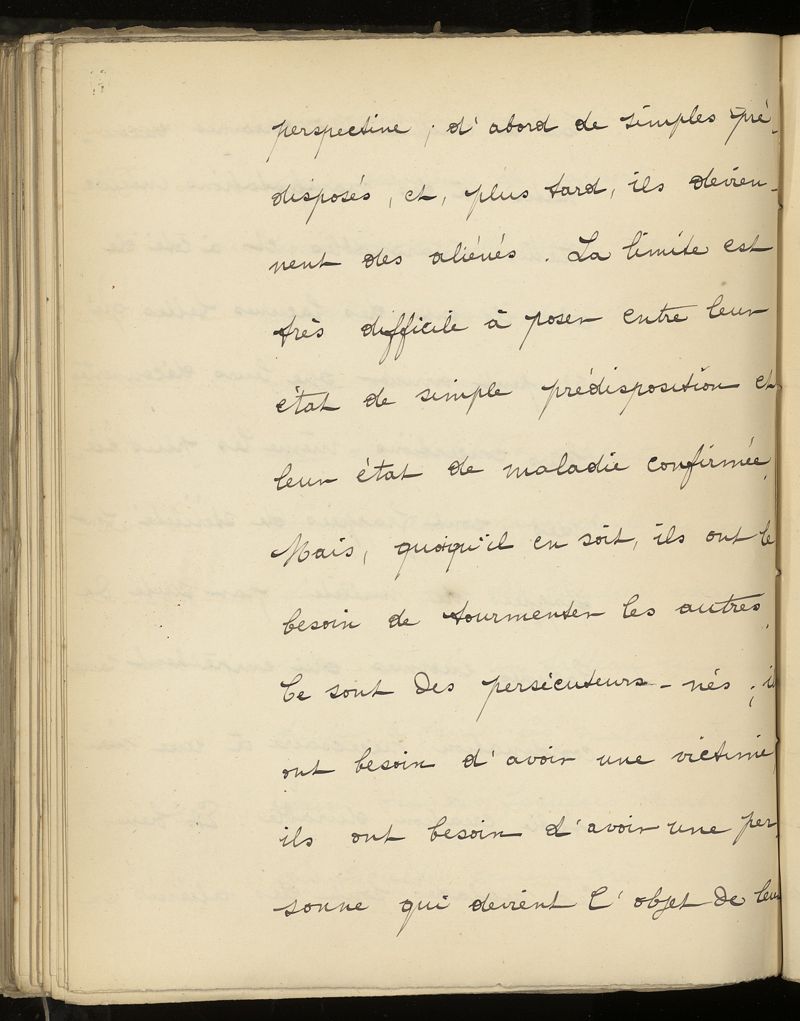 perspective, d'abord de simples pré-
disposés, et, plus tard, ils devien-
nent des aliénés. La limite est
très difficile à poser entre leur
état de simple prédisposition et
leur état de maladie confirmée.
Mais, quoiqu'il en soit, ils ont le
besoin de tourmenter les autres.
Ce sont des persécuteurs-nés; il
ont besoin d'avoir une victime,
ils ont besoin d'avoir une per
sonne qui devient l'objet de leur